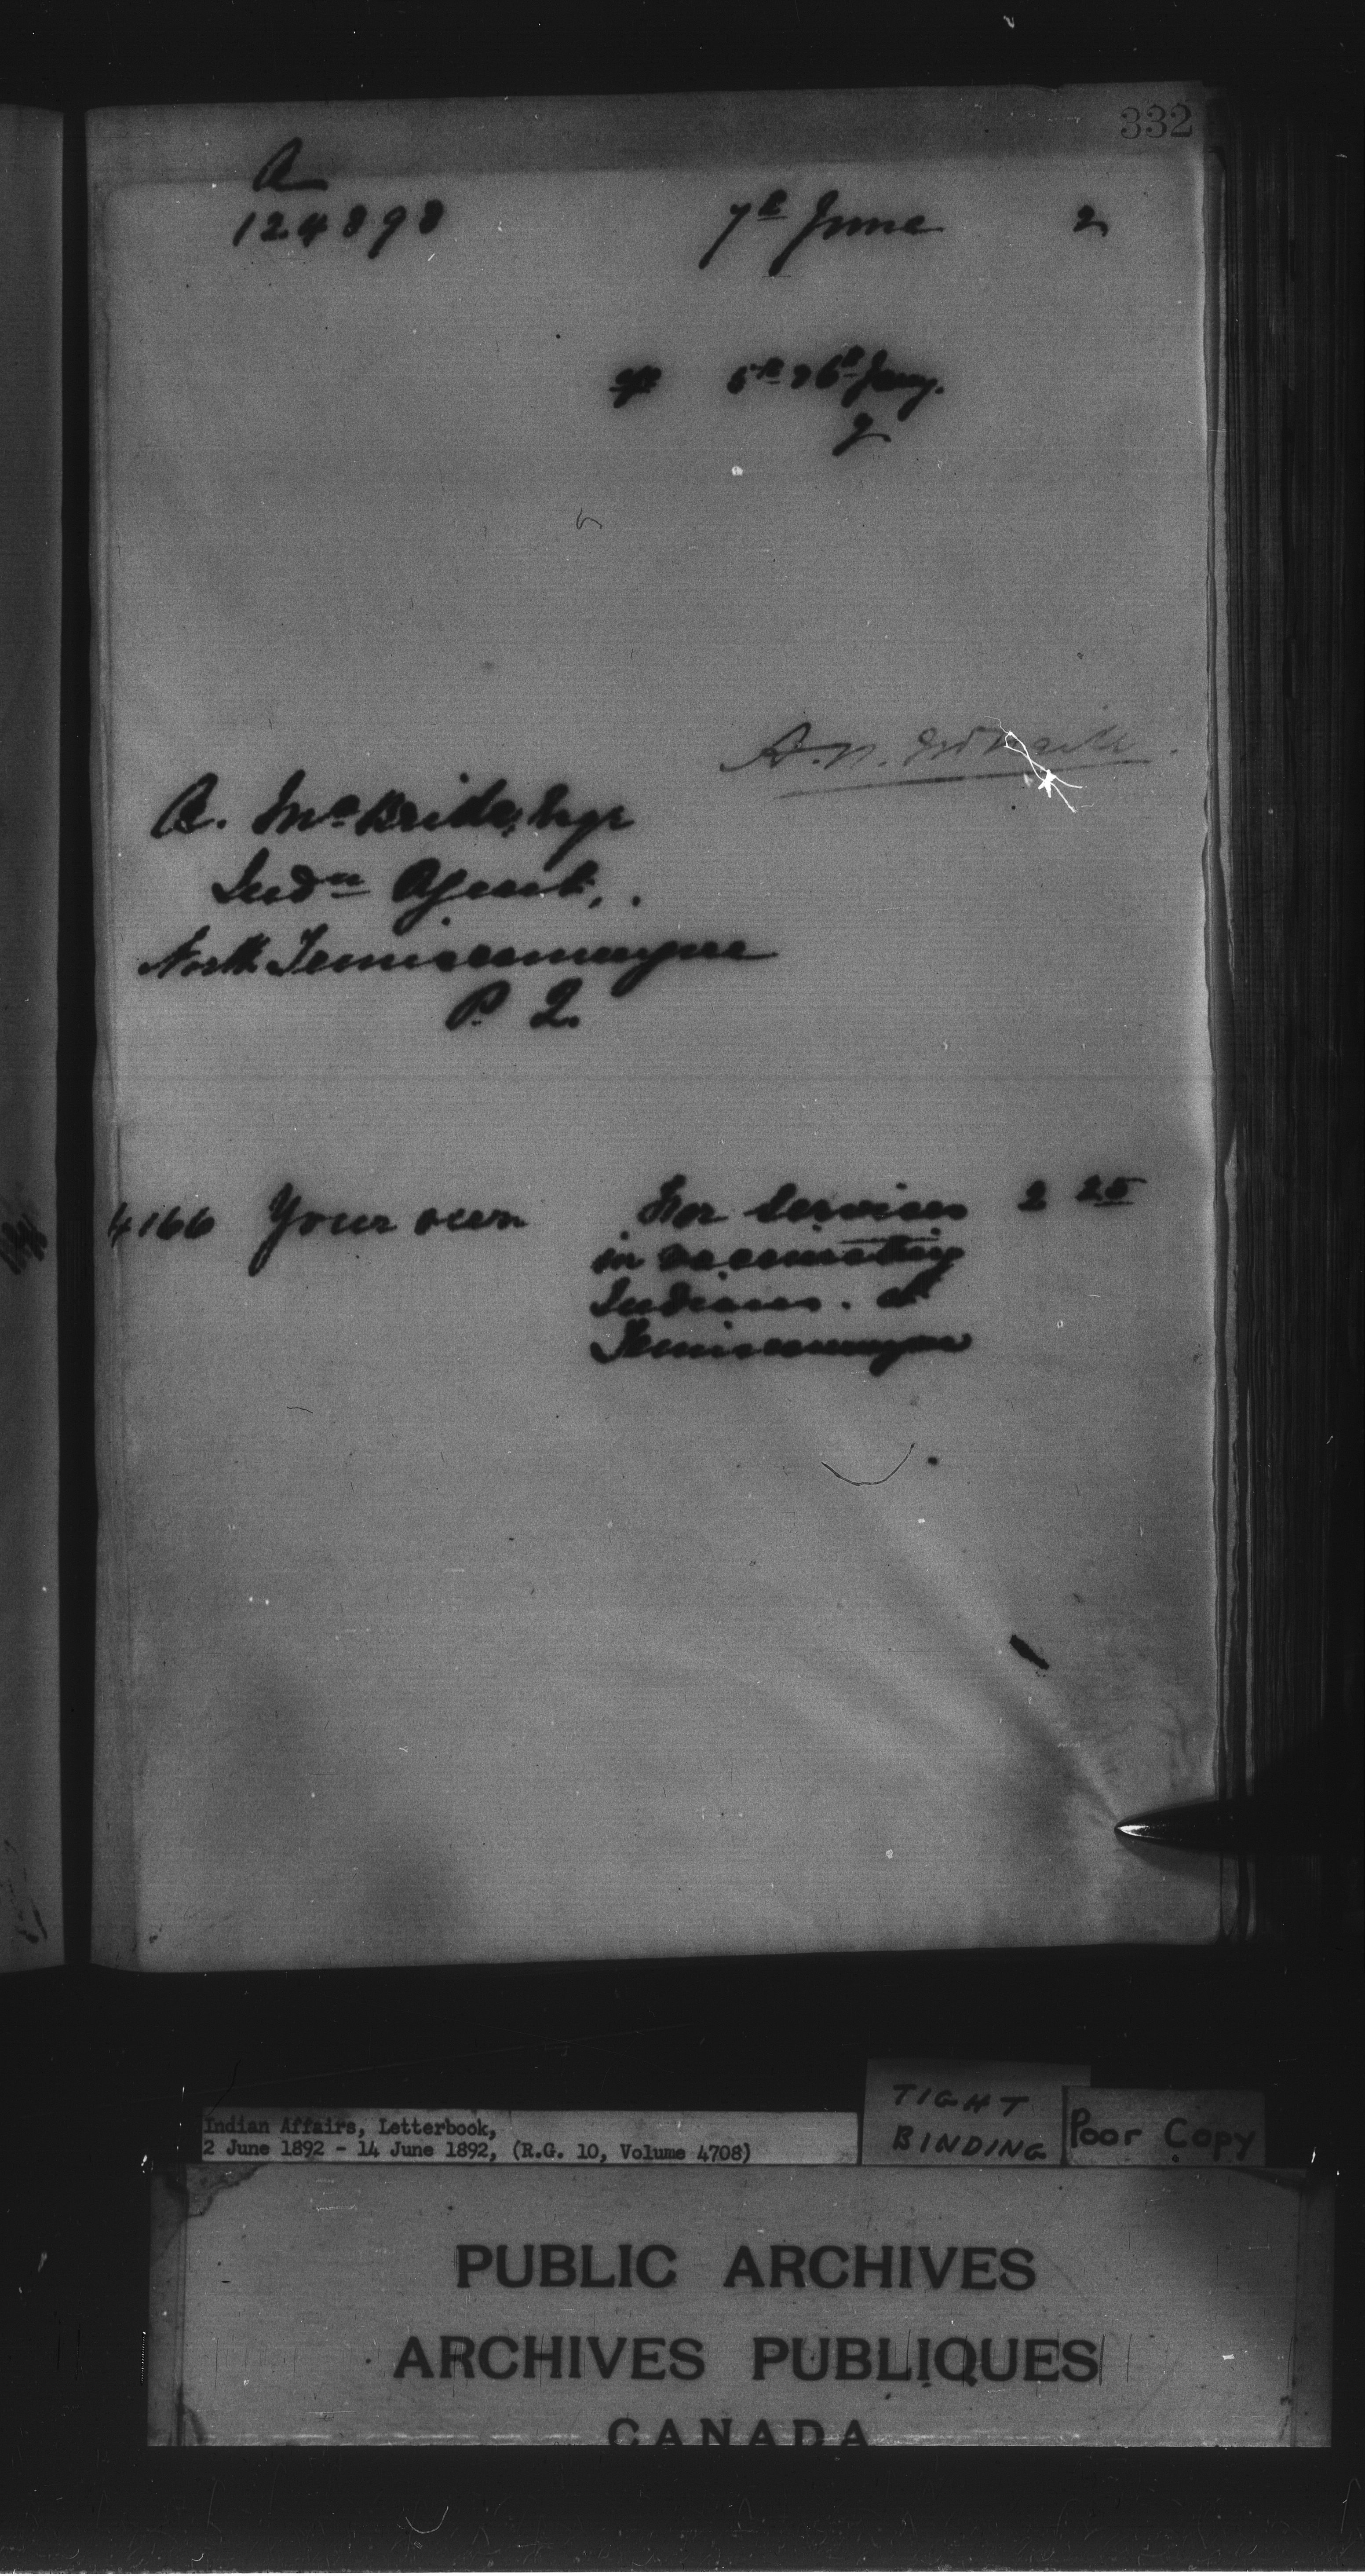 332
A
124898 7th June 2
5th & 6th Jany.
2
A. McBride, Esqr
Indn Agent,
North Temiscamingue
P. Q.
4166 Your own For Services 2 25
in vaccinating
Indians. at
Temiscamingue
Indian Affairs, Letterbook,
2 June 1892 - 14 June 1892, (R.G. 10, Volume 4708)
TIGHT
BINDING
Poor Copy
PUBLIC ARCHIVES
ARCHIVES PUBLIQUES
CANADA